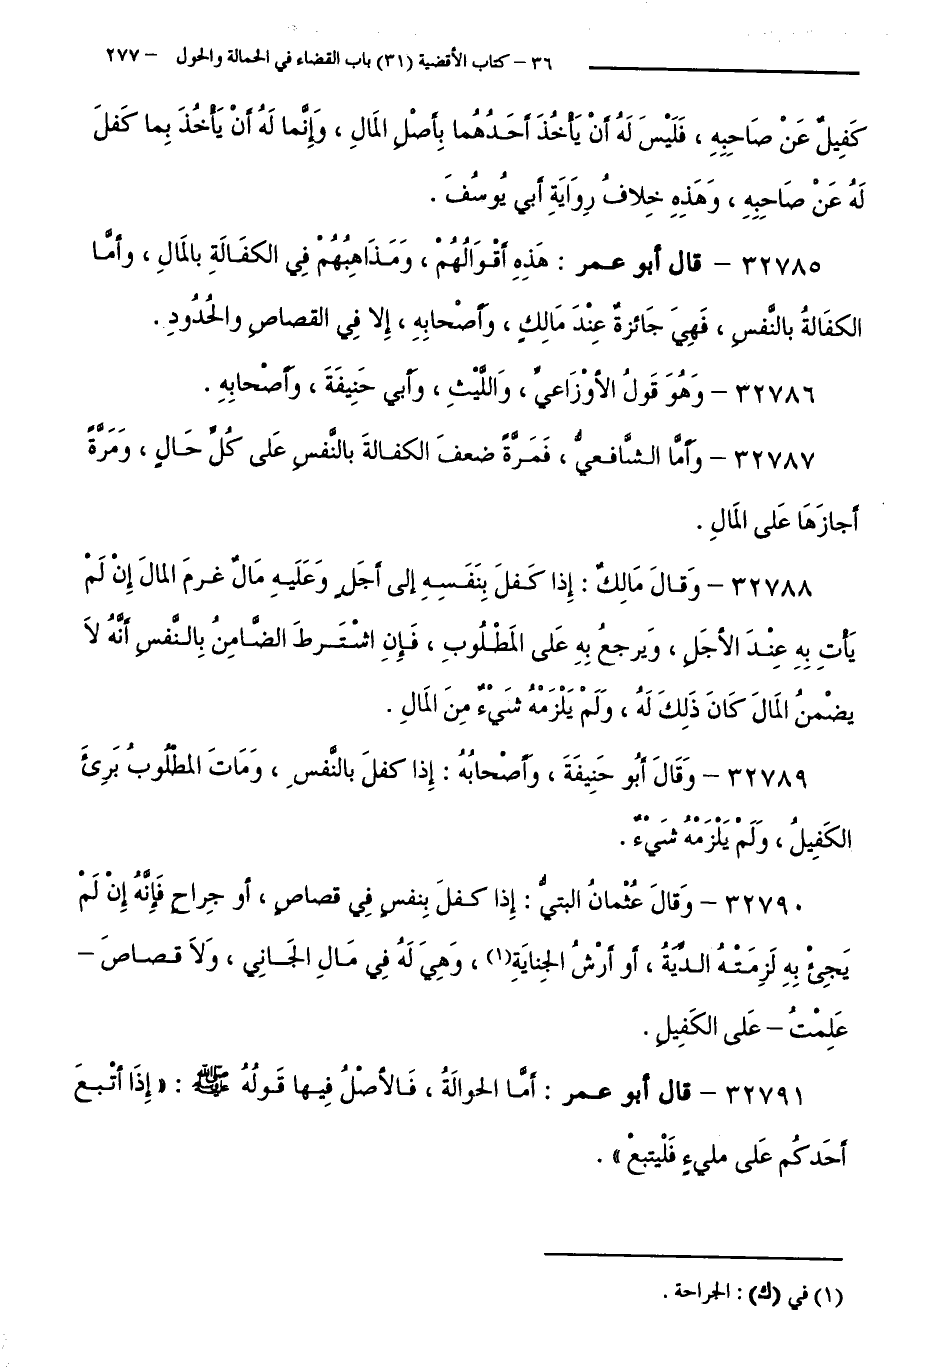 ٣٦ – كتاب الأقضية (٣١) باب القضاء في الحمالة والحول – ٢٧٧
كَفِيلٌ عَنْ صَاحِبِهِ ، فَلَيْسَ لَهُ أَنْ يَأْخُذَ أَحَدُهُما بِأَصْلِ المَالِ ، وَإِنَّما لَهُ أَنْ يَأْخُذَ بِما كَفلَ
لَهُ عَنْ صَاحِبِهِ ، وَهَذِهِ خِلافُ رِوَايَةِ أَبي يُوسُفَ .
٣٢٧٨٥ – قال أبو عـمر : هَذِهِ أَقْـوَالُهُمْ ، وَمَذَاهِبُهُمْ فِي الكَفَـالَةِ بالمَالِ ، وأمَّا
الكفَالةُ بالنَّفسِ ، فَهِيَ جَائزةٌ عِنْدَ مَالِكٍ ، وَأَصْحابِهِ ، إِلا فِي القصاصِ والحُدُودِ .
٣٢٧٨٦ – وَهُوَ قَولُ الأَوْزَاعيِّ ، وَاللَّيْثِ ، وَأَبي حَنِيفَةَ ، وَأَصْحابِهِ .
٣٢٧٨٧ – وأَمَّا الشَّافعيُّ ، فَمَرَّةً ضعفَ الكفالةَ بالنَّفسِ عَلى كُلِّ حَـالٍ ، وَمَرَّةً
أجازَهَا عَلى المَالِ .
٣٢٧٨٨ – وَقـالَ مَالِكٌ : إِذا كَـفلَ بِنَفَسِهِ إلى أَجَلٍ وَعَلَيهِ مَالٌ غـرمَ المَالَ إِنْ لَمْ
يَأْتِ بِهِ عِنْـدَ الأَجَلِ ، وَيَرجعُ بِهِ عَلى المَطْلُوبِ ، فَـإِنِ اشْتَـرطَ الضَّامِنُ بِالنَّفسِ أَنَّهُ لاَ
يضْمنُ المَالَ كَانَ ذَلِكَ لَهُ ، وَلَمْ يَلْزَمْهُ شَيْءٌ مِنَ المَالِ .
٣٢٧٨٩ – وَقَالَ أَبُو حَنِيفَةَ ، وَأَصْحابُهُ : إِذا كفلَ بالنَّفسِ ، وَمَاتَ المَطْلُوبُ بَرِئَ
الكَفِيلُ ، وَلَمْ يَلْزَمْهُ شَيْءٌ .
٣٢٧٩٠ – وَقالَ عُثْمانُ البتيُّ : إِذا كـفلَ بِنفسٍ فِي قصاصٍ ، أو جِراحٍ فَإِنَّهُ إِنْ لَمْ
يَجئْ بِهِ لَزِمَتْهُ الدِّيَةُ ، أو أَرْشُ الجِنايَةِ(١) ، وَهِيَ لَهُ فِي مَالِ الجَـاني ، وَلاَ قـصاصَ –
عَلِمْتُ – عَلى الكَفِيلِ .
٣٢٧٩١ – قال أبو عـمر : أَمَّـا الحَوالَةُ ، فَـالأَصْلُ فِيـها قَـولُهُ ﷺ : « إِذَا أُتْـبعَ
أَحَدكُم عَلى مليءٍ فَلْيتبعْ » .
(١) في (ك) : الجراحة .